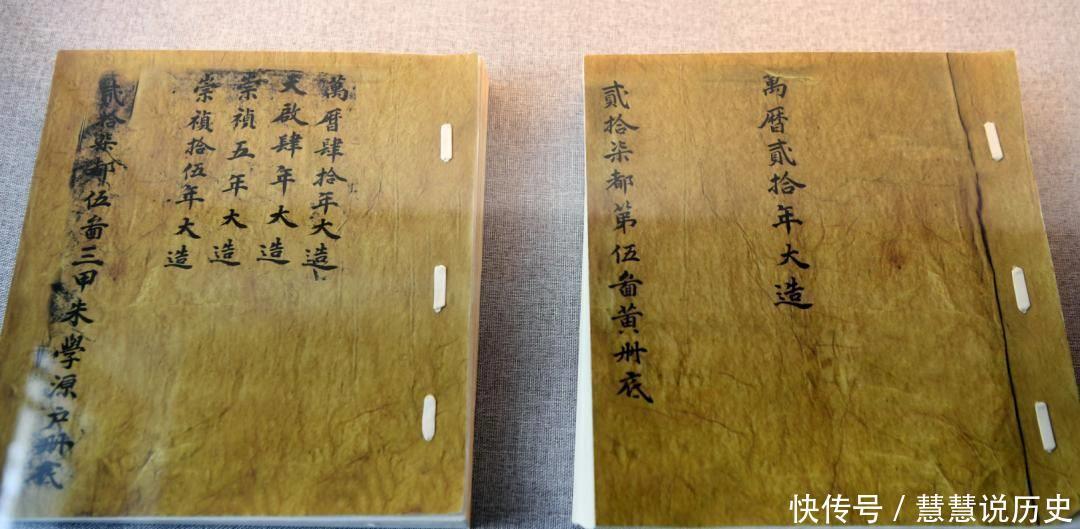 萬暦肆拾年大造
天啟肆年大造
崇禎五年大造
崇禎拾伍年大造
貳拾柒都伍啚三甲朱學源戶冊底
萬暦貳拾年大造
貳拾柒都第伍啚黄冊底
快传号 / 慧慧说历史